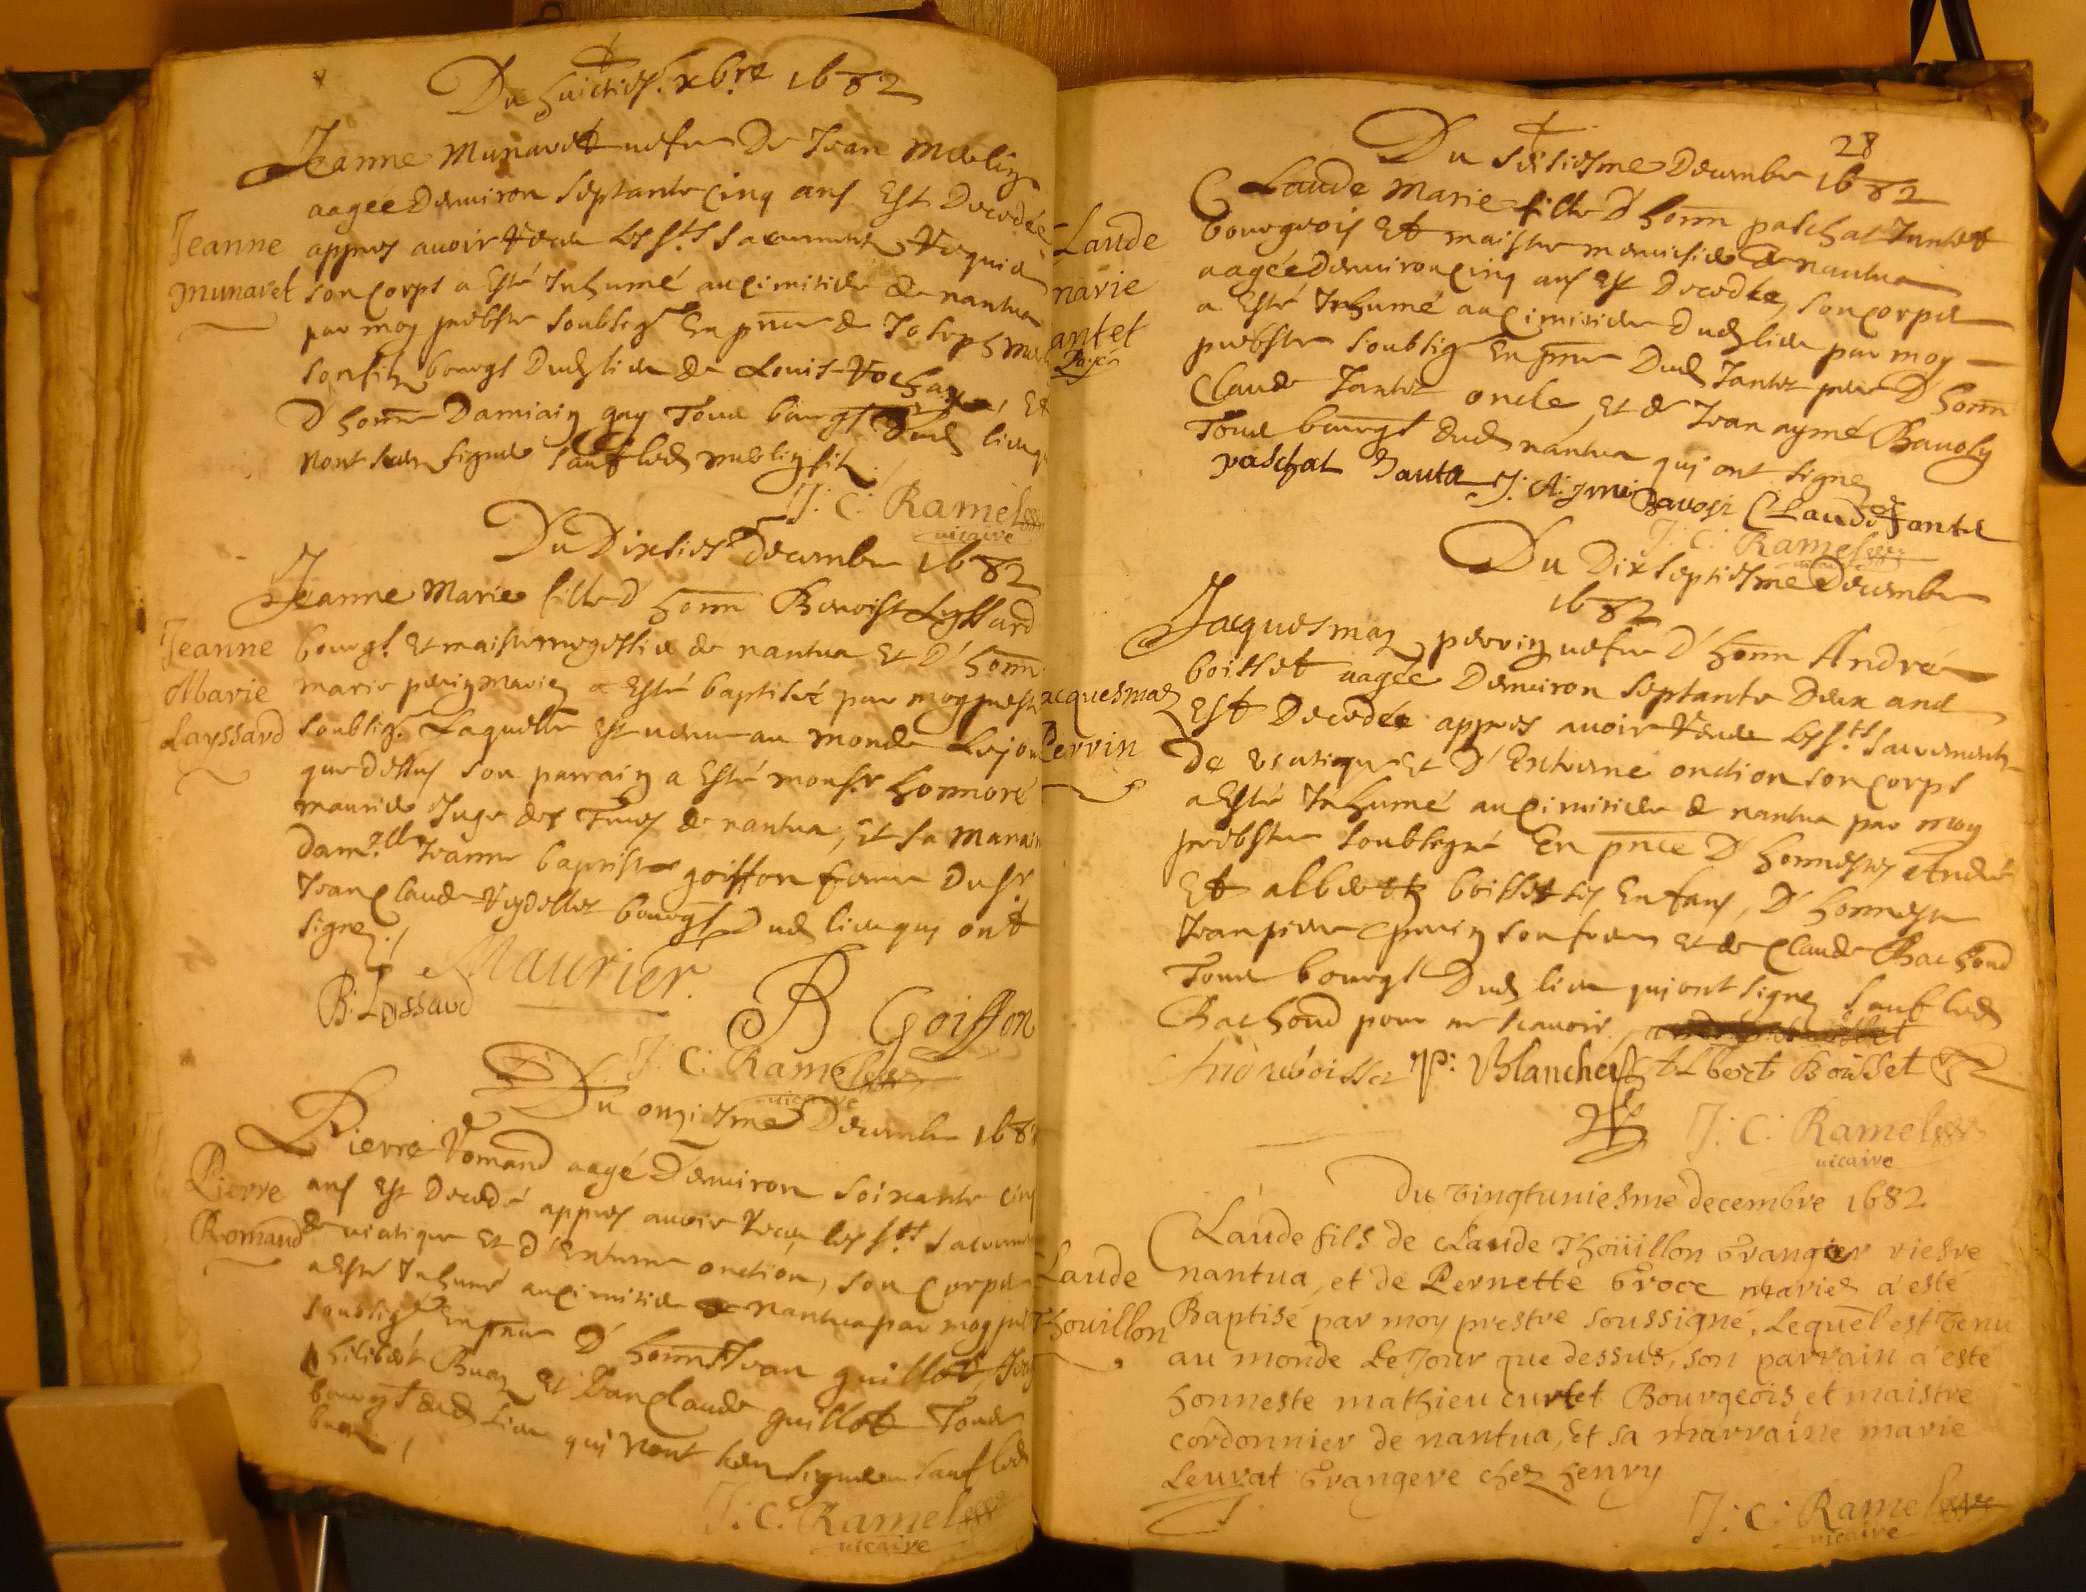 Du huicties. xb.re 1682
Jeanne Munaret vefve De Jean
aagée Denviron septante cinq ans Est Decedée
appres avoir receu les s.ts sacrements requis
son corps a Esté Inhumé au cimitiere de nantua
par moy prebstre soubsig.é En pnce de Joseph
son filz bourgs Dud lieu de Louis
D honn Damiain gay Tous bourgs Dud lieu
nont sceu signer sauf led
Jeanne
Munaret
J: C: Ramel
vicaire
Du Dixsies.e decembre 1682
Jeanne Marie fille D honn Benoist Layssard
bourg.s Et maistre megissier de nantua Et D' honn
marie perrin mariez a Esté baptisée par moy prestre
soubsig. Laquelle Est venue au monde Le jour
que Dessus son parrain a Esté mons.r honnoré
maurier Juge des Terres de nantua, Et sa maraine
dam.lle Jeanne baptiste goiffon femme Du s.r
Jean Claude Reydellet bourgs Dud lieu quy ont
signez ./.
Jeanne
Marie
Layssard
Maurier.
B. Layssard
B Goiffon
J: C: Ramel
vicaire
Du onziesme Decembre 168
Pierre Romand aagé Denviron soixante cinq
ans Est Decedé appres avoir receu les s.ts sacrements
de viatique Et D'Extreme onction, son corps
a Esté Inhumé au cimitiere de nantua par moy
soubsig.é En pnce D' honn Jean guillot,
philibert Buaz Et Jean Claude guillot Tous
bourgs dud Lieu qui nont sceu signer sauf led
buaz ./.
Pierre
Romand
J: C: Ramel
vicaire
28
Du seisiesme Decembre 1682
Claude Marie fille D' honn paschal Jantet
bourgeois Et maistre menuisier de nantua
aagée Denviron cinq ans Est Decedée, son corps
a Esté Inhumé au cimitiere dud lieu par moy
prebstre soubsig.é En pnce Dud Jantet pere D' honn
Claude Jantet oncle Et de Jean aymé Ravosy
Tous bourgs dud nantua qui ont signez
Laude
marie
antet
paschal Jantet J: Aymé Ravosy Claude Jantet
J: C: Ramel
Du Dixseptiesme Decembre
1682
Jacquesmaz perrin vefve D' honn André
boisset aagée Denviron septante Deux ans
Est Decedée appres avoir receu les s.ts sacrements
De viatique Et D' Extreme onction son corps
a Esté Inhumé au cimitiere de nantua par moy
prebstre soubsigné En pnce D' honnestes André
Et albert boisset ses Enfans, D' honneste
Jean pierre perrin son frere Et de Claude Bachoud
Tous bourgs Dud lieu qui ont signez sauf led
Bachoud pour ne scavoir
acquesmaz
Perrin
André boisset P: Blanchet Albert Boisset
J: C: Ramel
vicaire
Du vingtuniesme decembre 1682
Claude fils de Claude Thoüillon Grangier riesre
nantua, et de Pernette Groce mariez a esté
Baptisé par moy prestre soussigné, Lequel est venu
au monde Le Jour que dessus, son parrain a esté
honneste mathieu curtet Bourgeois et maistre
cordonnier de nantua, Et sa marraine marie
Leurat Grangere chez henry
Laude
Thouillon
J: C: Ramel
vicaire